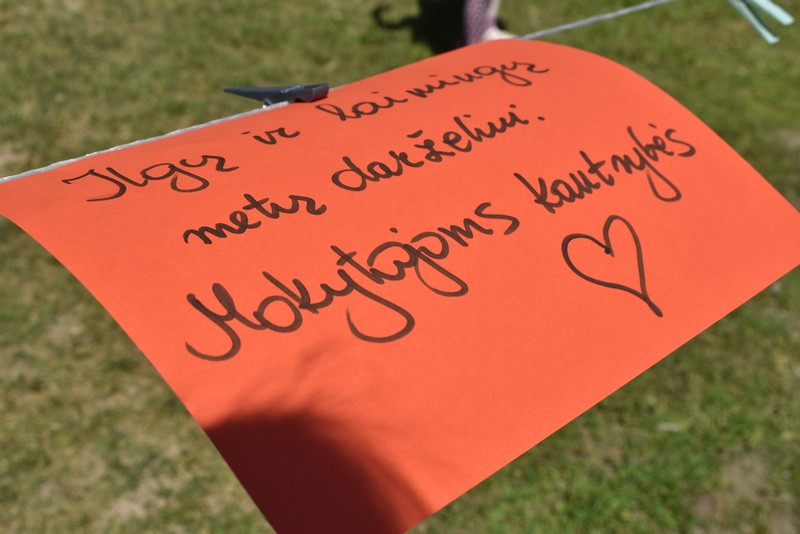 Ilgų ir laimingų
metų darželiui.
Mokytojoms kantrybės